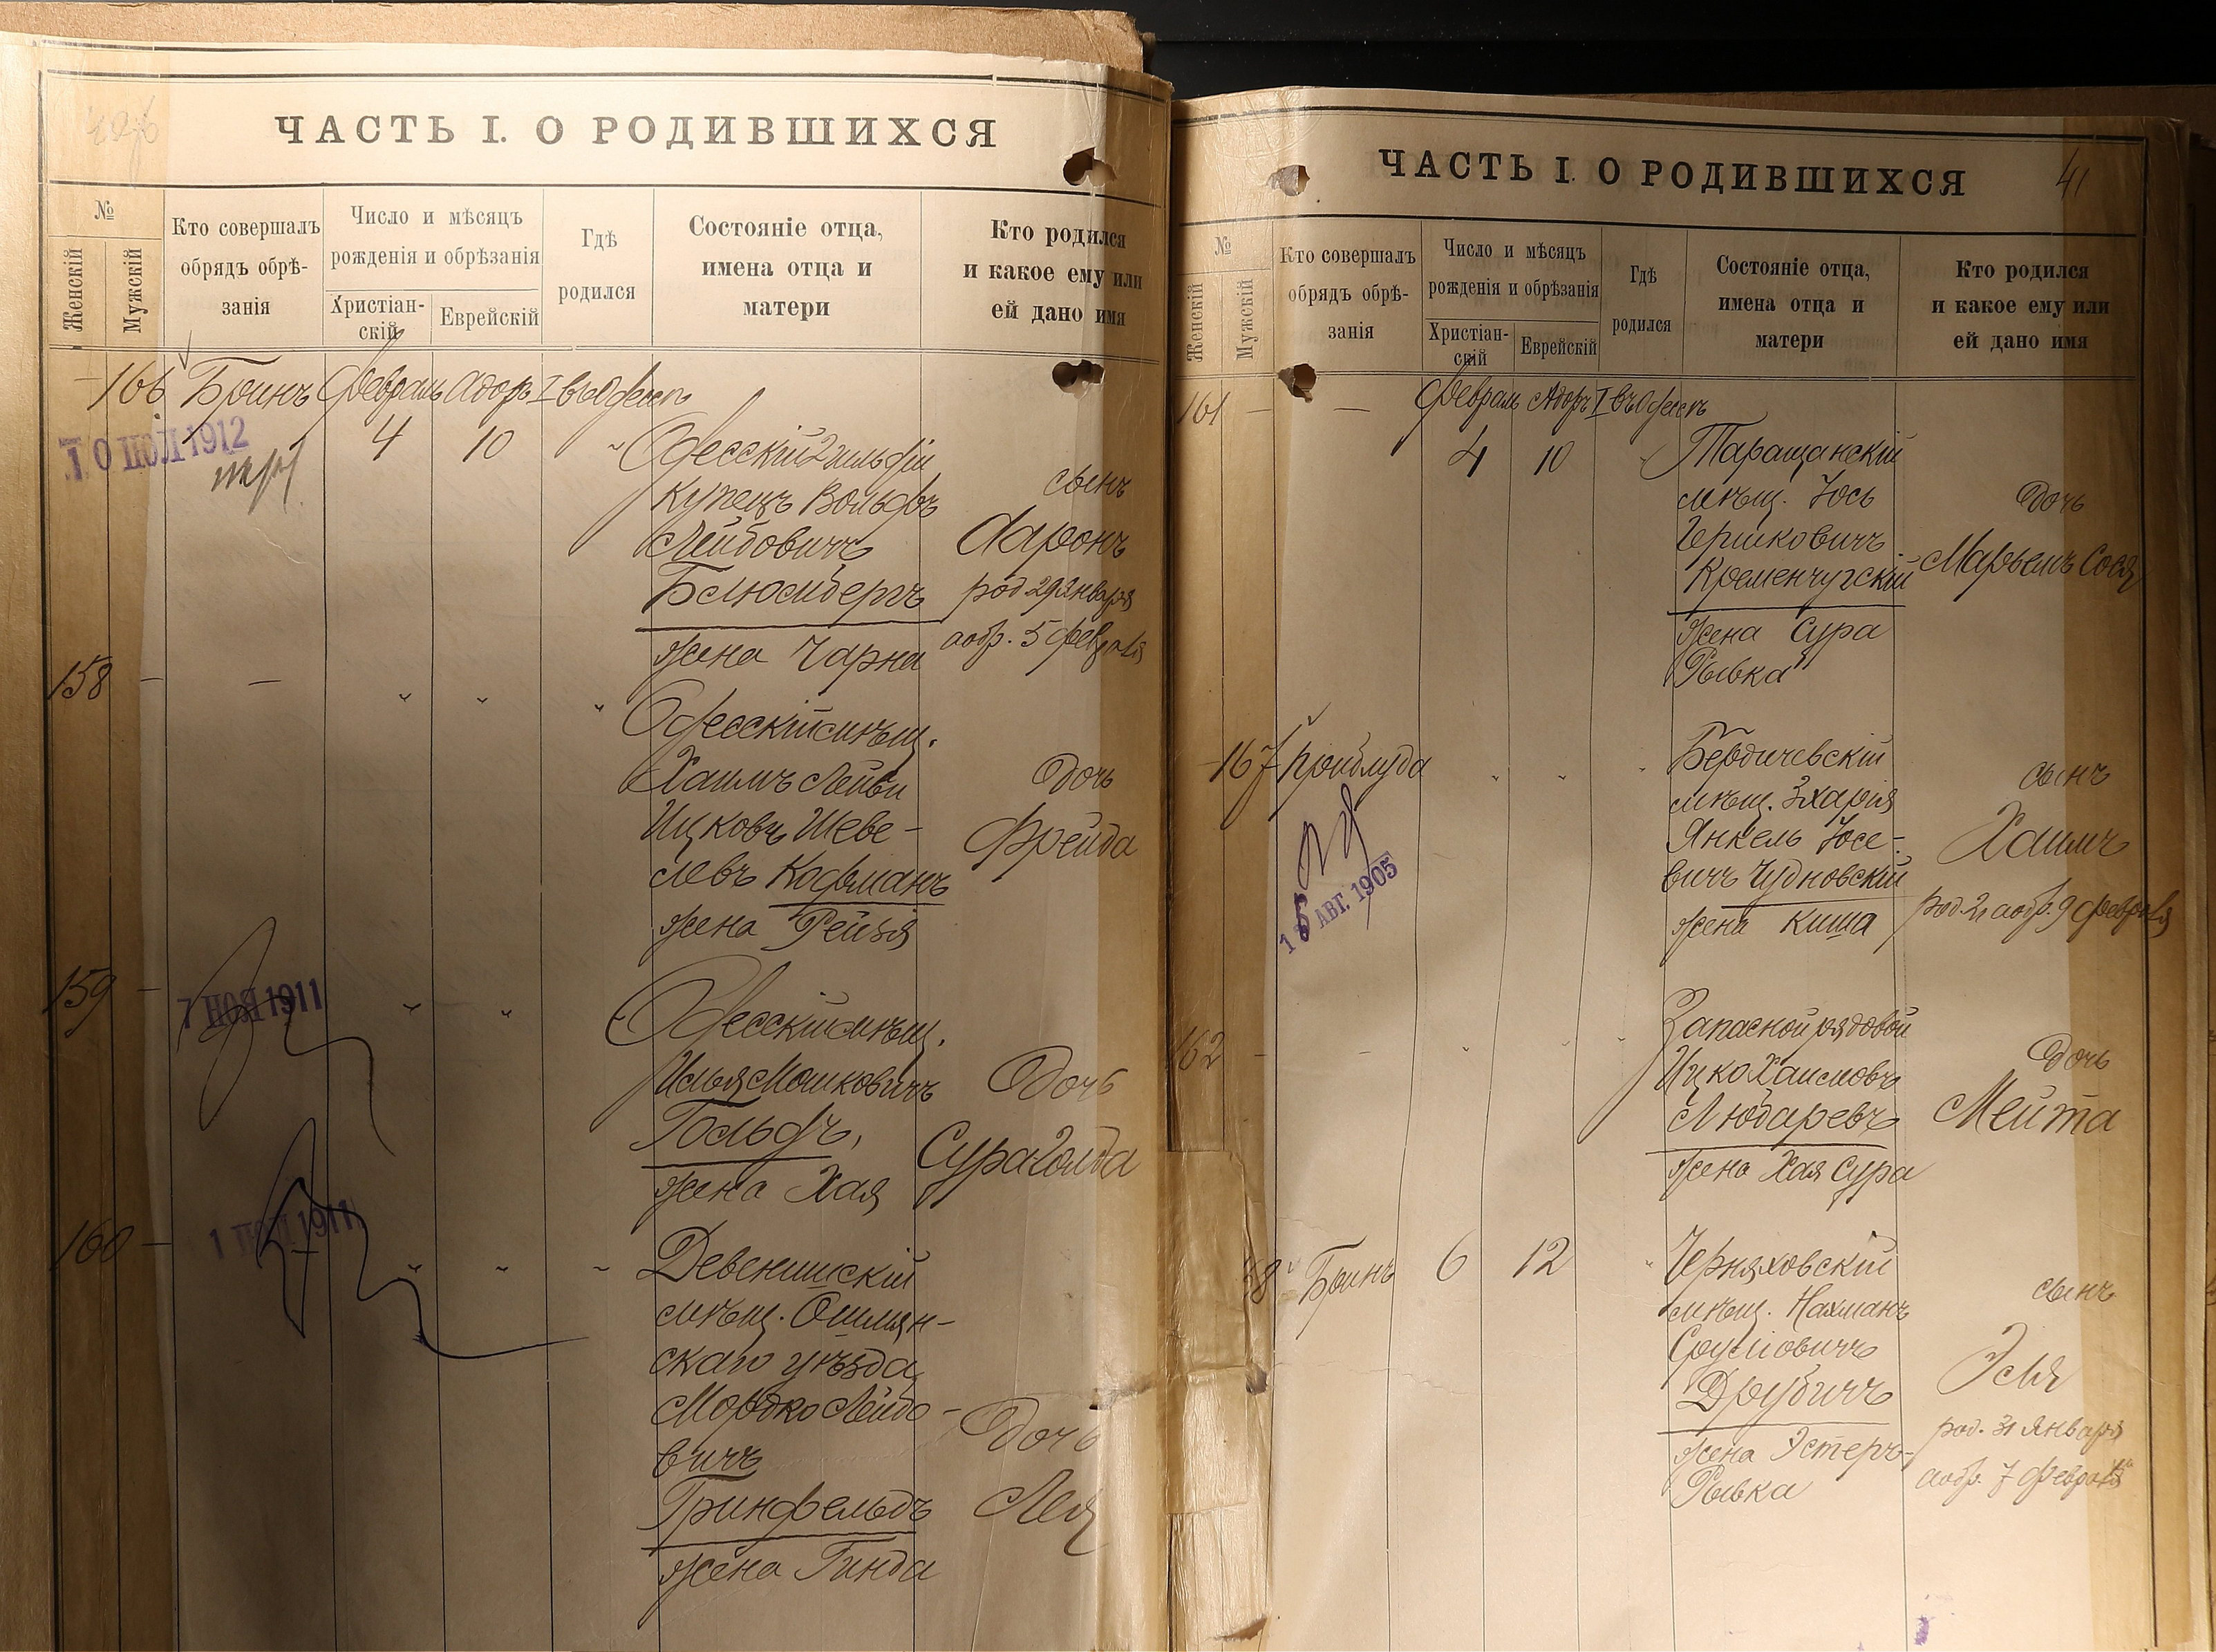 ЧАСТЬ I. О РОДИВШИХСЯ
№
Женскій
Мужскій
Кто совершалъ
обрядъ обрѣ-
занія
Число и мѣсяцъ
рожденія и обрѣзанія
Христіан-
скій
Еврейскій
Гдѣ
родился
Состояніе отца,
имена отца и
матери
Кто родился
и какое ему или
ей дано имя
166 Бринъ Февраль Адоръ I въ Одессѣ
10 ІЮЛ 1912
4 10
Одесскій 2 гильдіи
купецъ Вольфъ
Лейбовичъ
Блюмбергъ
жена Чарна
сынъ
Ааронъ
род. 29 Января
а обр. 5 февраля
158 — —
Одесскій мѣщ.
Хаимъ Лейби
Ицковъ Шеве-
левъ Кофманъ
жена Рейзя
дочь
Фрейда
159 —
7 НОЯ 1911
Одесскій мѣщ.
Илья Мошковичъ
Гольфъ,
жена Хая
Дочь
Сура Голда
160 —
1911
Девенишскій
мѣщ. Ошмян-
скаго уѣзда
Мордко Лейбо-
вичъ
Гринфельдъ
жена Гинда
Дочь
Лея
ЧАСТЬ I. О РОДИВШИХСЯ
41
№
Женскій
Мужскій
Кто совершалъ
обрядъ обрѣ-
занія
Число и мѣсяцъ
рожденія и обрѣзанія
Христіан-
скій
Еврейскій
Гдѣ
родился
Состояніе отца,
имена отца и
матери
Кто родился
и какое ему или
ей дано имя
161 — — Февраль Адоръ I въ Одессѣ
4 10
Таращанскій
мѣщ. Іось
Гершковичъ
Кременчугскій
жена Сура
Рывка
дочь
Марьемъ Сося
— 167 Приблуда
16 АВГ. 1905
Бердичевскій
мѣщ. Зхарія
Янкель Іосе-
вичъ Чудновскій
жена Киша
сынъ
Хаимъ
род. 2 а обр. 9 февраля
162 — —
Запасной рядовой
Ицко Хаимовъ
Любаревъ
жена Хая Сура
дочь
Мейта
68 Бринъ 6 12
Черняховскій
мѣщ. Нахманъ
Сруліовичъ
Друбичъ
жена Эстеръ-
Рывка
сынъ
род. 31 Января
а обр. 7 февраля